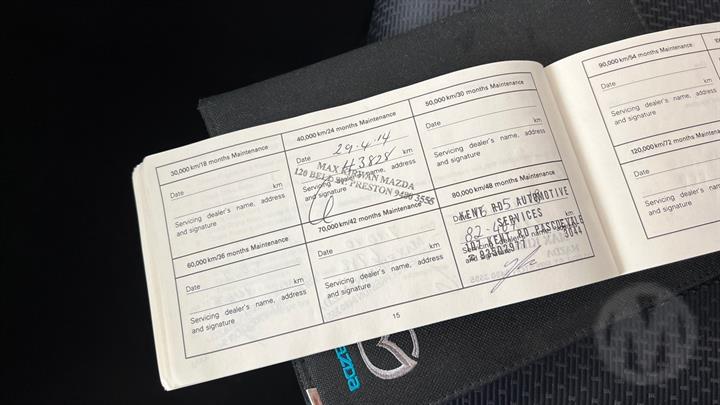 30,000 km/18 months Maintenance
Date
km
Servicing dealer's name, address
and signature
40,000 km/24 months Maintenance
Date 29.4.14
43828 km
Servicing dealer's name, address
and signature
MAX KIRWAN MAZDA
120 BELL ST. PRESTON 9480 3555
50,000 km/30 months Maintenance
Date
km
Servicing dealer's name, address
and signature
60,000 km/36 months Maintenance
Date
km
Servicing dealer's name, address
and signature
70,000 km/42 months Maintenance
Date
km
Servicing dealer's name, address
and signature
80,000 km/48 months Maintenance
Date
km
KENT RD AUTOMOTIVE
SERVICES
KENT RD PASCOE VALE
3044
Servicing dealer's name, address
and signature
15
90,000 km/54 months Maintenance
Date
Servicing dealer's name,
and signature
120,000 km/72 months Maintenance
Date
Servicing dealer's name,
and signature
mazda